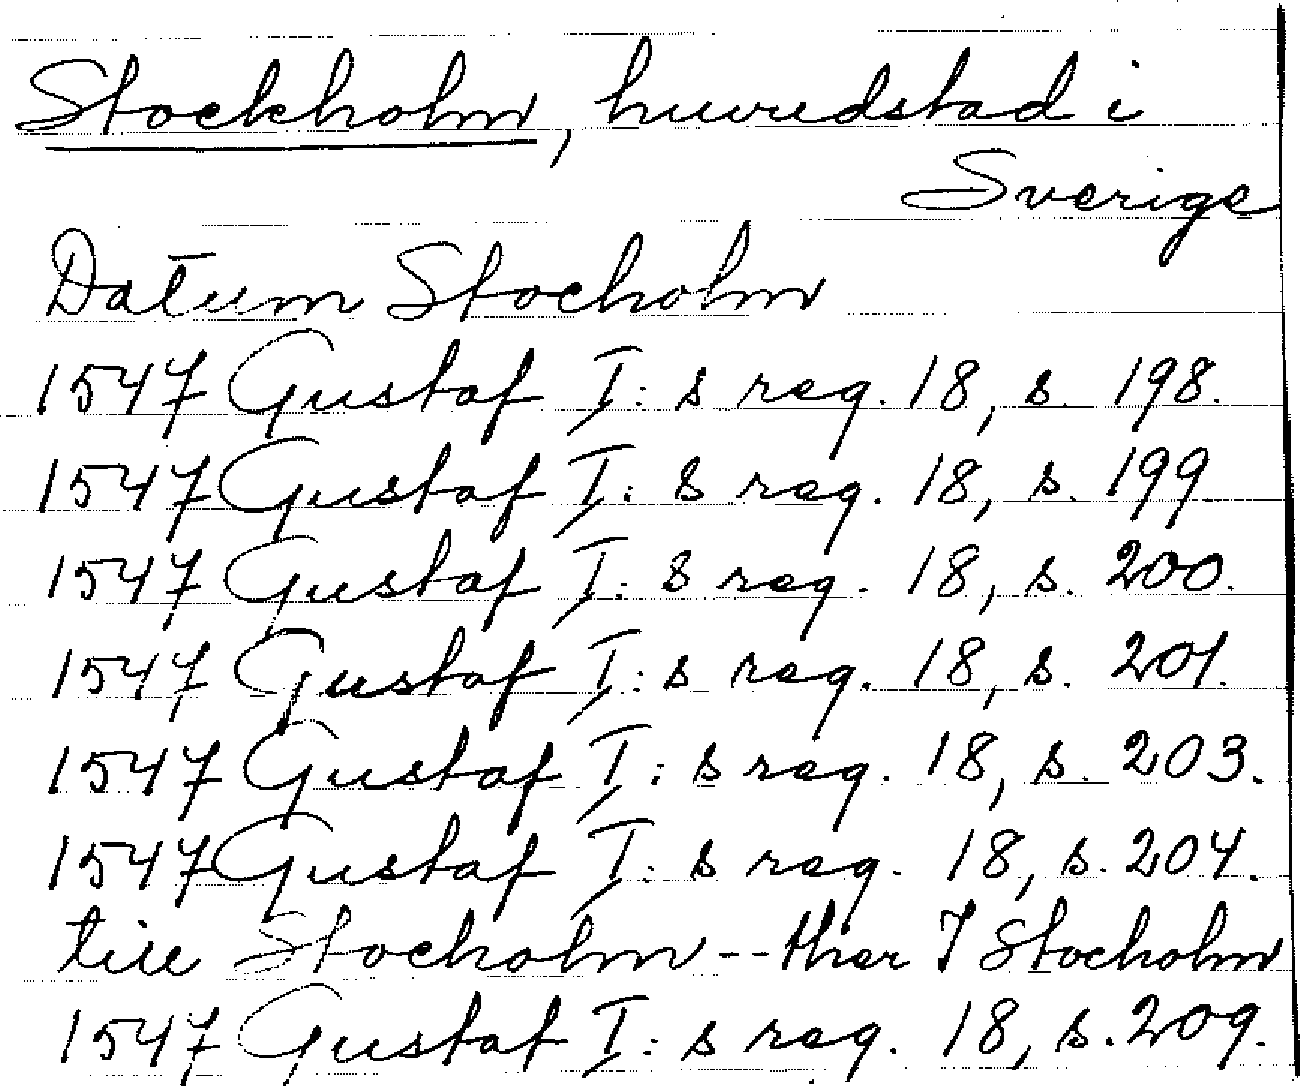 Stockholm, huvudstad i
Sverige
Datum Stocholm
1547 Gustaf I: s reg. 18, s. 198.
1547 Gustaf I: s reg. 18, s. 199
1547 Gustaf I: s reg. 18, s. 200.
1547 Gustaf I: s reg. 18, s. 201.
1547 Gustaf I: s reg. 18, s. 203.
1547 Gustaf I: s reg. 18, s. 204.
till Stocholm -- ther I Stocholm
1547 Gustaf I: s reg. 18, s. 209.